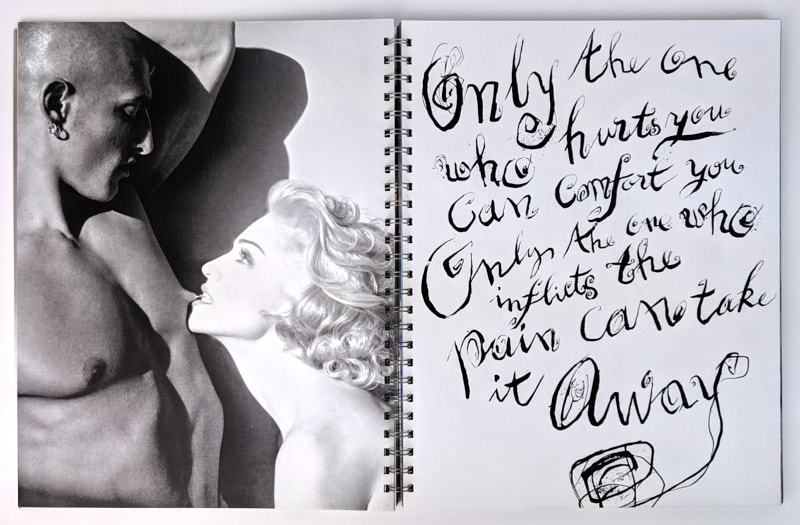 Only the one
who hurts you
can comfort you
Only the one who
inflicts the
pain can take
it Away